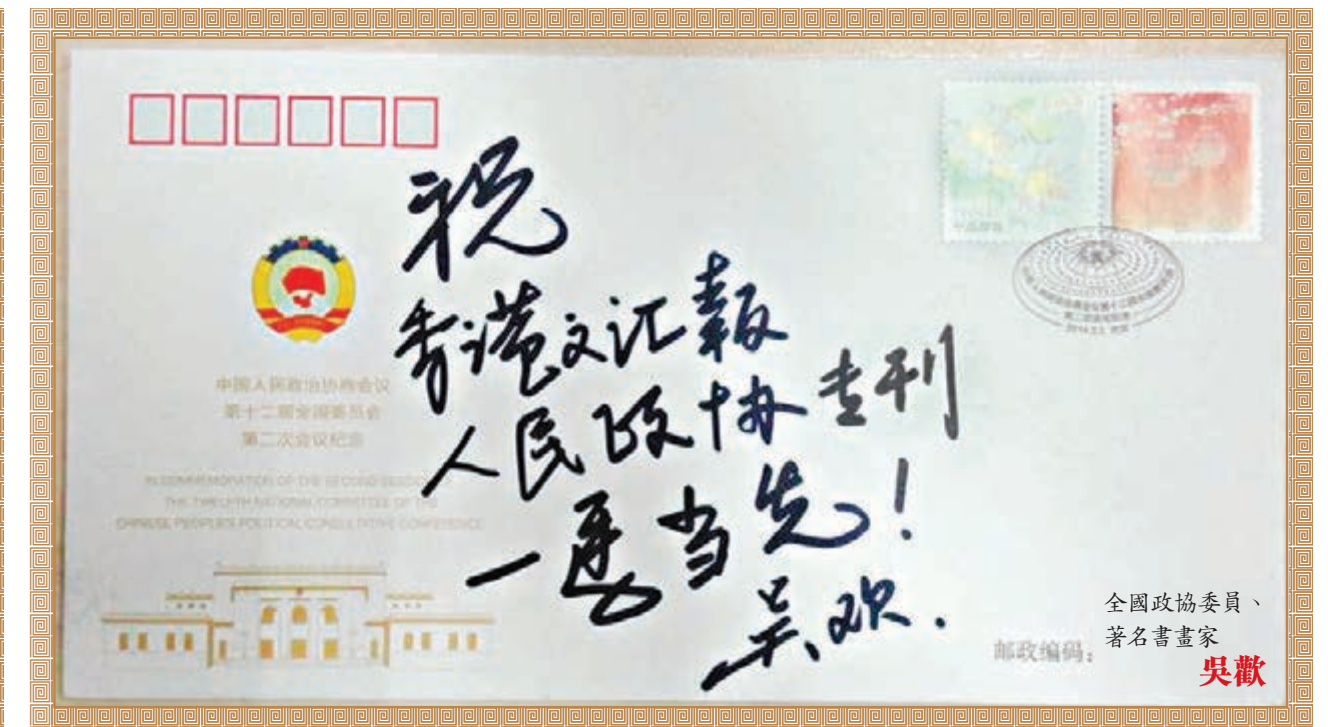 祝
香港文汇報
人民政协专刊
一馬当先!
吴欢.
中国人民政治协商会议
第十二届全国委员会
第二次会议纪念
IN COMMEMORATION OF THE SECOND SESSION OF
THE TWELFTH NATIONAL COMMITTEE OF THE
CHINESE PEOPLE'S POLITICAL CONSULTATIVE CONFERENCE
邮政编码:
全國政協委員、
著名書畫家
吳歡